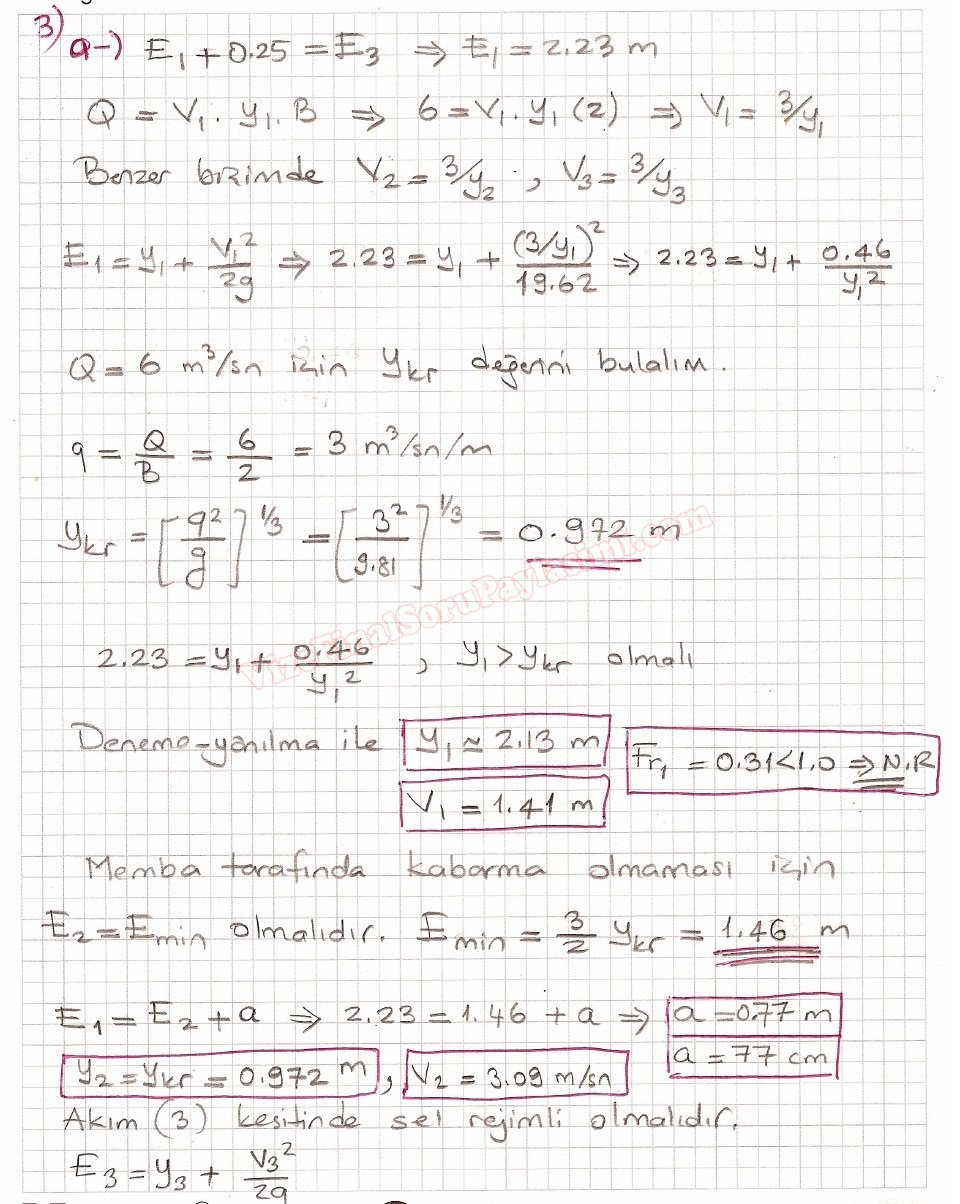 3) a-) E₁ + 0.25 = E₃ ⇒ E₁ = 2.23 m
Q = V₁ . y₁ . B ⇒ 6 = V₁ . y₁ (2) ⇒ V₁ = 3/y₁
Benzer bizimde V₂ = 3/y₂ , V₃ = 3/y₃
E₁ = y₁ + V₁²/2g ⇒ 2.23 = y₁ + (3/y₁)²/19.62 ⇒ 2.23 = y₁ + 0.46/y₁²
Q = 6 m³/sn için ykr değerini bulalım.
q = Q/B = 6/2 = 3 m³/sn/m
ykr = [q²/g]^1/3 = [3²/9.81]^1/3 = 0.972 m
VizeFinalSoruPaylasimi.com
2.23 = y₁ + 0.46/y₁² , y₁ > ykr olmalı
Deneme-yanılma ile y₁ ≃ 2.13 m Fr₁ = 0.31<1.0 ⇒ N.R
V₁ = 1.41 m
Memba tarafında kabarma olmaması için
E₂ = Emin olmalıdır. Emin = 3/2 ykr = 1.46 m
E₁ = E₂ + a ⇒ 2.23 = 1.46 + a ⇒ a = 0.77 m
a = 77 cm
y₂ = ykr = 0.972 m , V₂ = 3.09 m/sn
Akım (3) kesitinde sel rejimli olmalıdır.
E₃ = y₃ + V₃²/2g